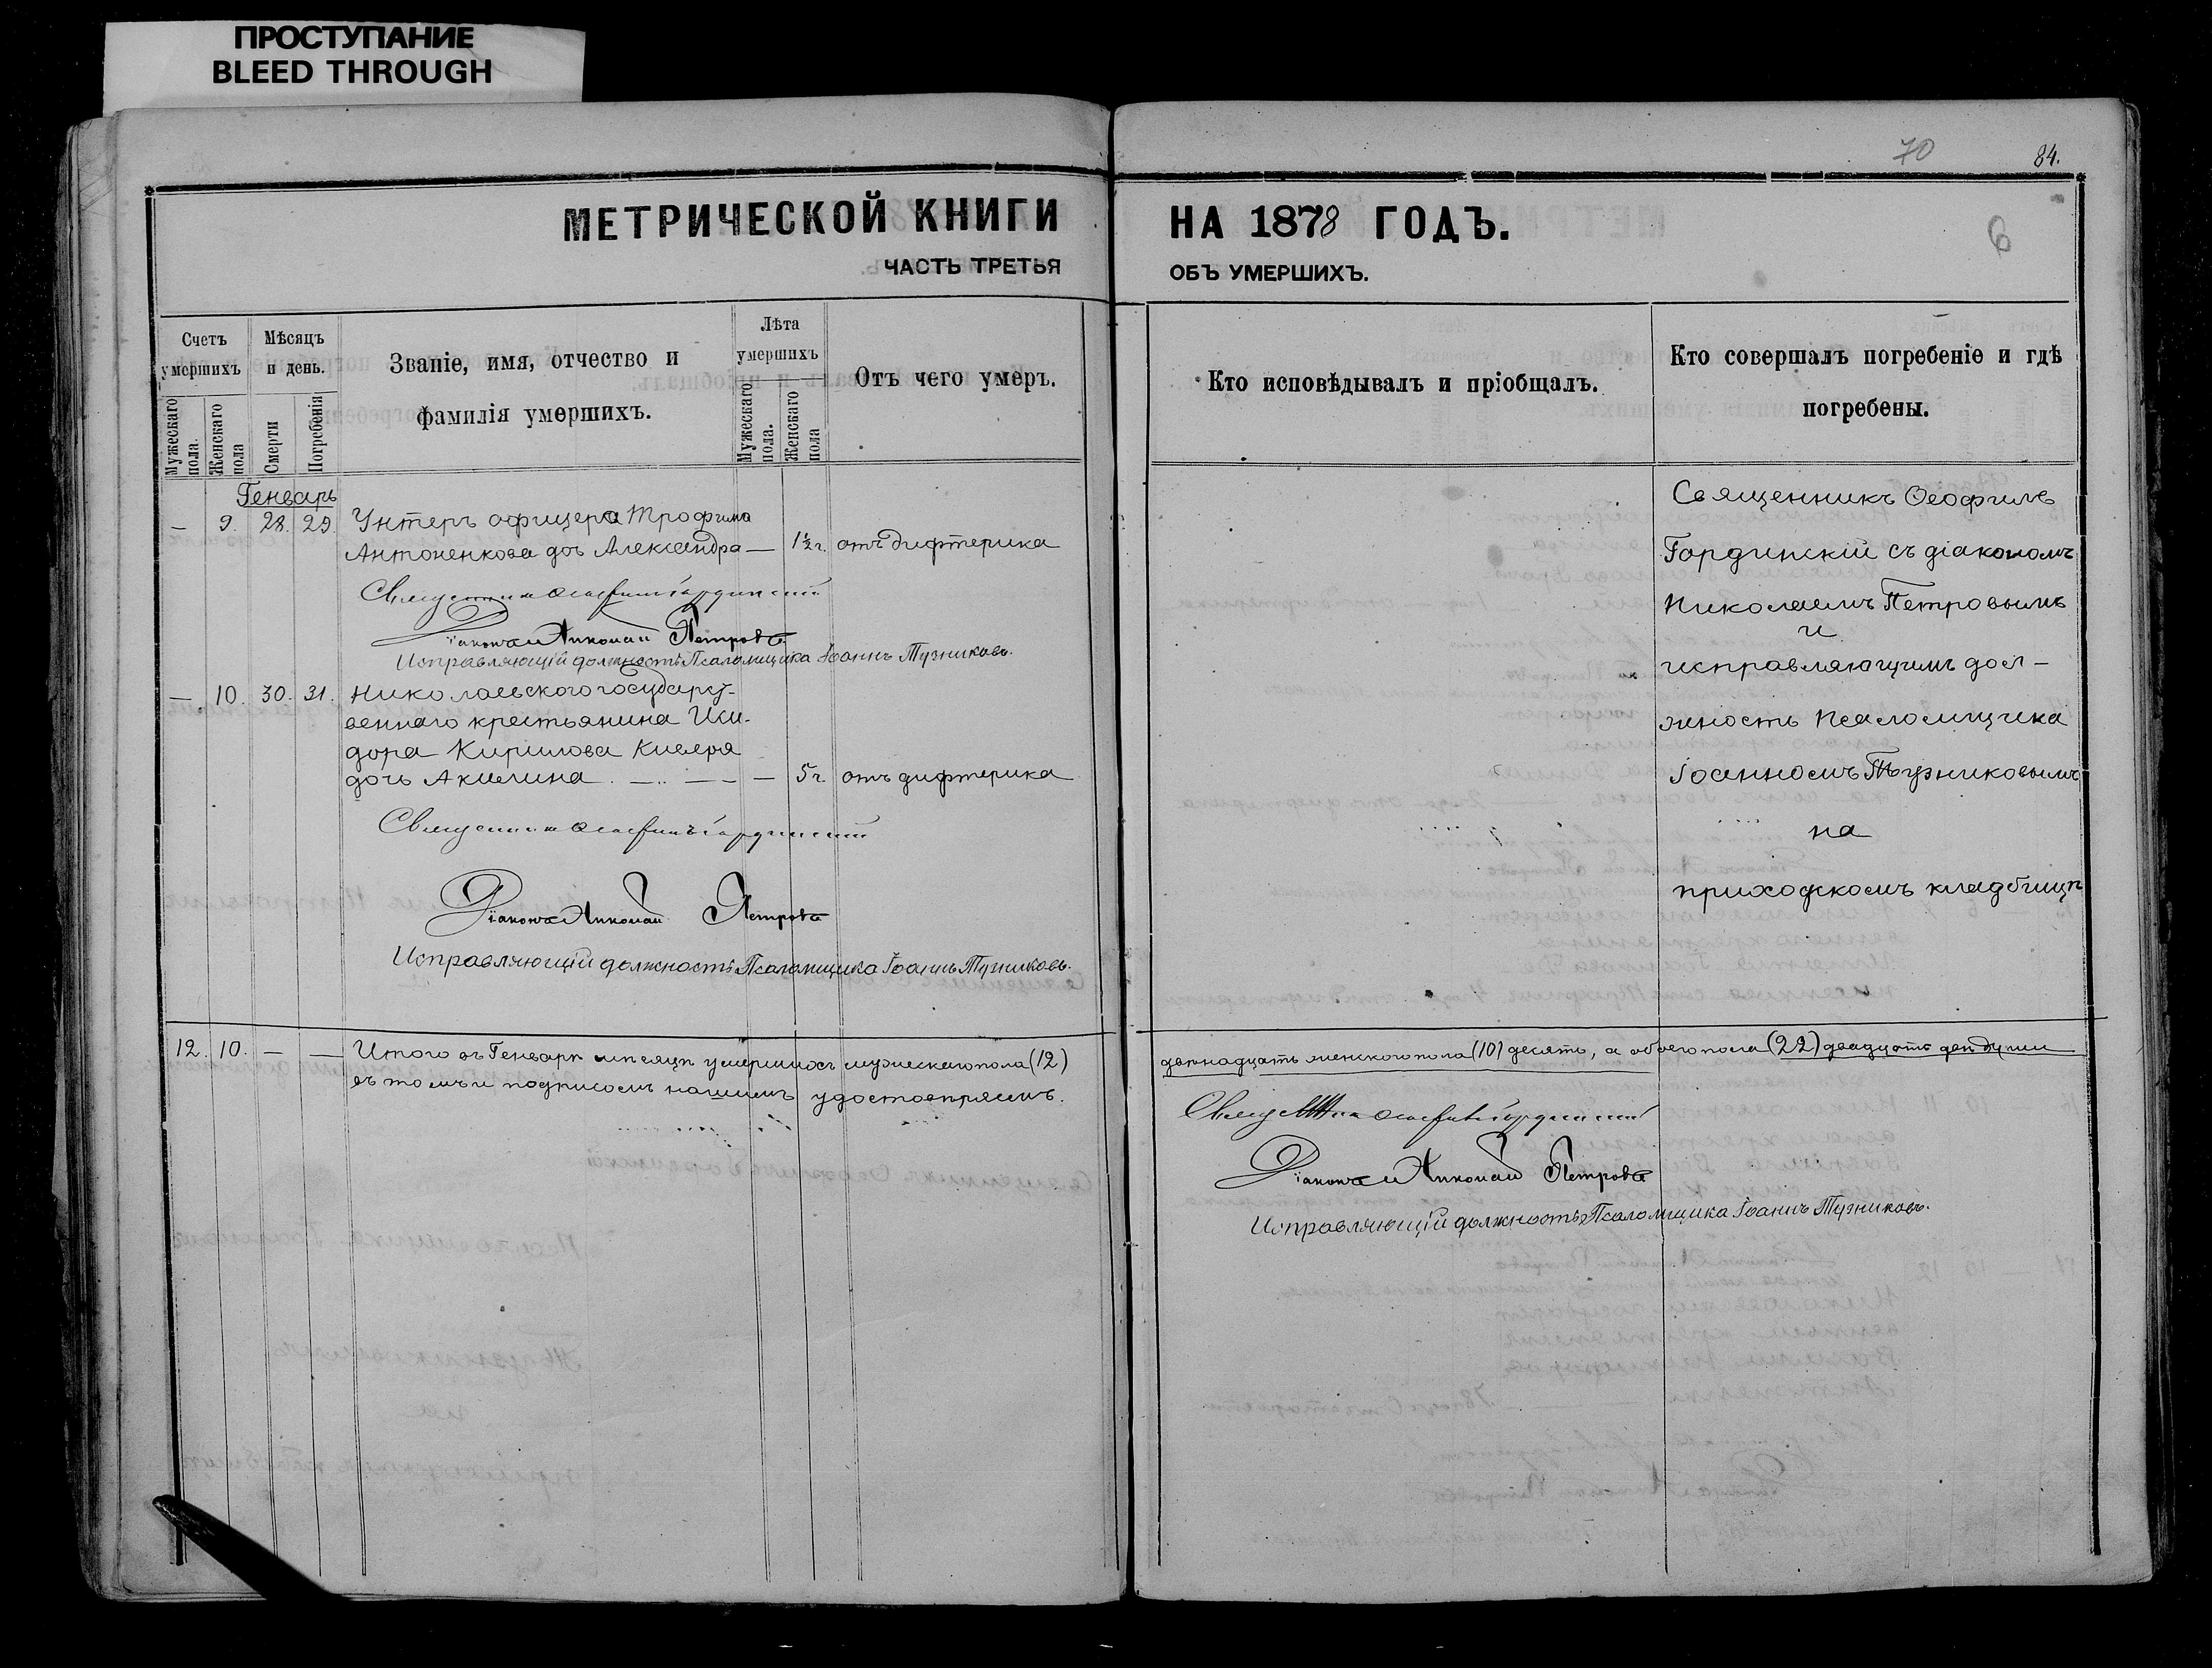 ПРОСТУПАНИЕ
BLEED THROUGH
70
84.
6
МЕТРИЧЕСКОЙ КНИГИ
НА 1878 ГОДЪ.
ЧАСТЬ ТРЕТЬЯ
ОБЪ УМЕРШИХЪ.
Счетъ умершихъ
Мужескаго пола.
Женскаго пола
Мѣсяцъ и день.
Смерти
Погребенія
Званіе, имя, отчество и
фамилія умершихъ.
Лѣта умершихъ
Мужескаго пола.
Женскаго пола
Отъ чего умеръ.
Кто исповѣдывалъ и пріобщалъ.
Кто совершалъ погребеніе и гдѣ
погребены.
Генварь
— 9. 28. 29. Унтеръ офицера Трофима
Антоненкова дочь Александра — 1½ г. отъ дифтерика
Священникъ Ѳеофилъ Гординскій
Діаконъ Николай Петровъ
Исправляющій должность Псаломщика Іоаннъ Тузниковъ.
— 10. 30. 31. Николаевского государст-
веннаго крестьянина Иси-
дора Кирилова
дочь Акилина — 5 г. отъ дифтерика
Священникъ Ѳеофилъ Гординскій
Діаконъ Николай Петровъ
Исправляющій должность Псаломщика Іоаннъ Тузниковъ.
12. 10. — — Итого въ Генварѣ мѣсяцѣ умершихъ мужескаго пола (12)
въ томъ и подписомъ нашимъ удостовѣряемъ.
Священникъ Ѳеофилъ
Гординскій съ діакономъ
Николаемъ Петровымъ
и
исправляющимъ дол-
жность Псаломщика
Іоанномъ Тузниковымъ
на
приходскомъ кладбищѣ
двѣнадцать женского пола (10) десять, а обоего пола (22) двадцать двѣ души
Священникъ Ѳеофилъ Гординскій
Діаконъ Николай Петровъ
Исправляющій должность Псаломщика Іоаннъ Тузниковъ.